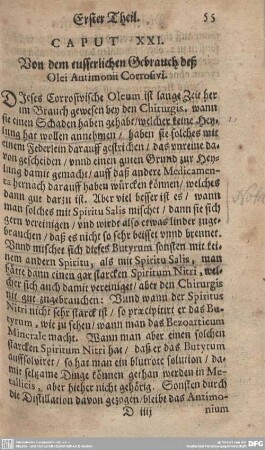 Erster Theil. 55
CAPUT XXI.
Von dem eusserlichen Gebrauch deß
Olei Antimonii Corrosivi.
DIeses Corrosivische Oleum ist lange Zeit her
im Brauch gewesen bey den Chirurgis, wann
sie einen Schaden haben gehabt/welcher keine Hey-
lung hat wollen annehmen / haben sie solches mit
einem Federlein darauff gestrichen / das unreine da-
von gescheiden / vnnd einen guten Grund zur Hey-
lung damit gemacht / auff daß andere Medicamen-
ta hernach darauff haben würcken können/ welches
dann gut darzu ist. Aber viel besser ist es / wann
man solches mit Spiritu Salis mischet / dann sie sich
gern vereinigen / vnd wirdt also etwas linder zuge-
brauchen / daß es nicht so sehr beisset vnnd brennet.
Vnnd mischet sich dieses Butyrum sonsten mit kei-
nem andern Spiritu, als mit Spiritu Salis, man
hätte dann einen gar starcken Spiritum Nitri, wel-
cher sich auch damit vereiniget/ aber den Chirurgis
nit gut zugebrauchen: Vnnd wann der Spiritus
Nitri nicht sehr starck ist / so præcipitirt er das Bu-
tyrum, wie zu sehen/ wann man das Bezoarticum
Minerale macht. Wann man aber einen solchen
starcken Spiritum Nitri hat / daß er das Butyrum
auffsolviret / so hat man ein blutrote solution / da-
mit seltzame Dinge können gethan werden in Me-
tallicis, aber hieher nicht gehörig. Sonsten durch
die Distillation davon gezogen/ bleibt das Antimo-
D iiij nium